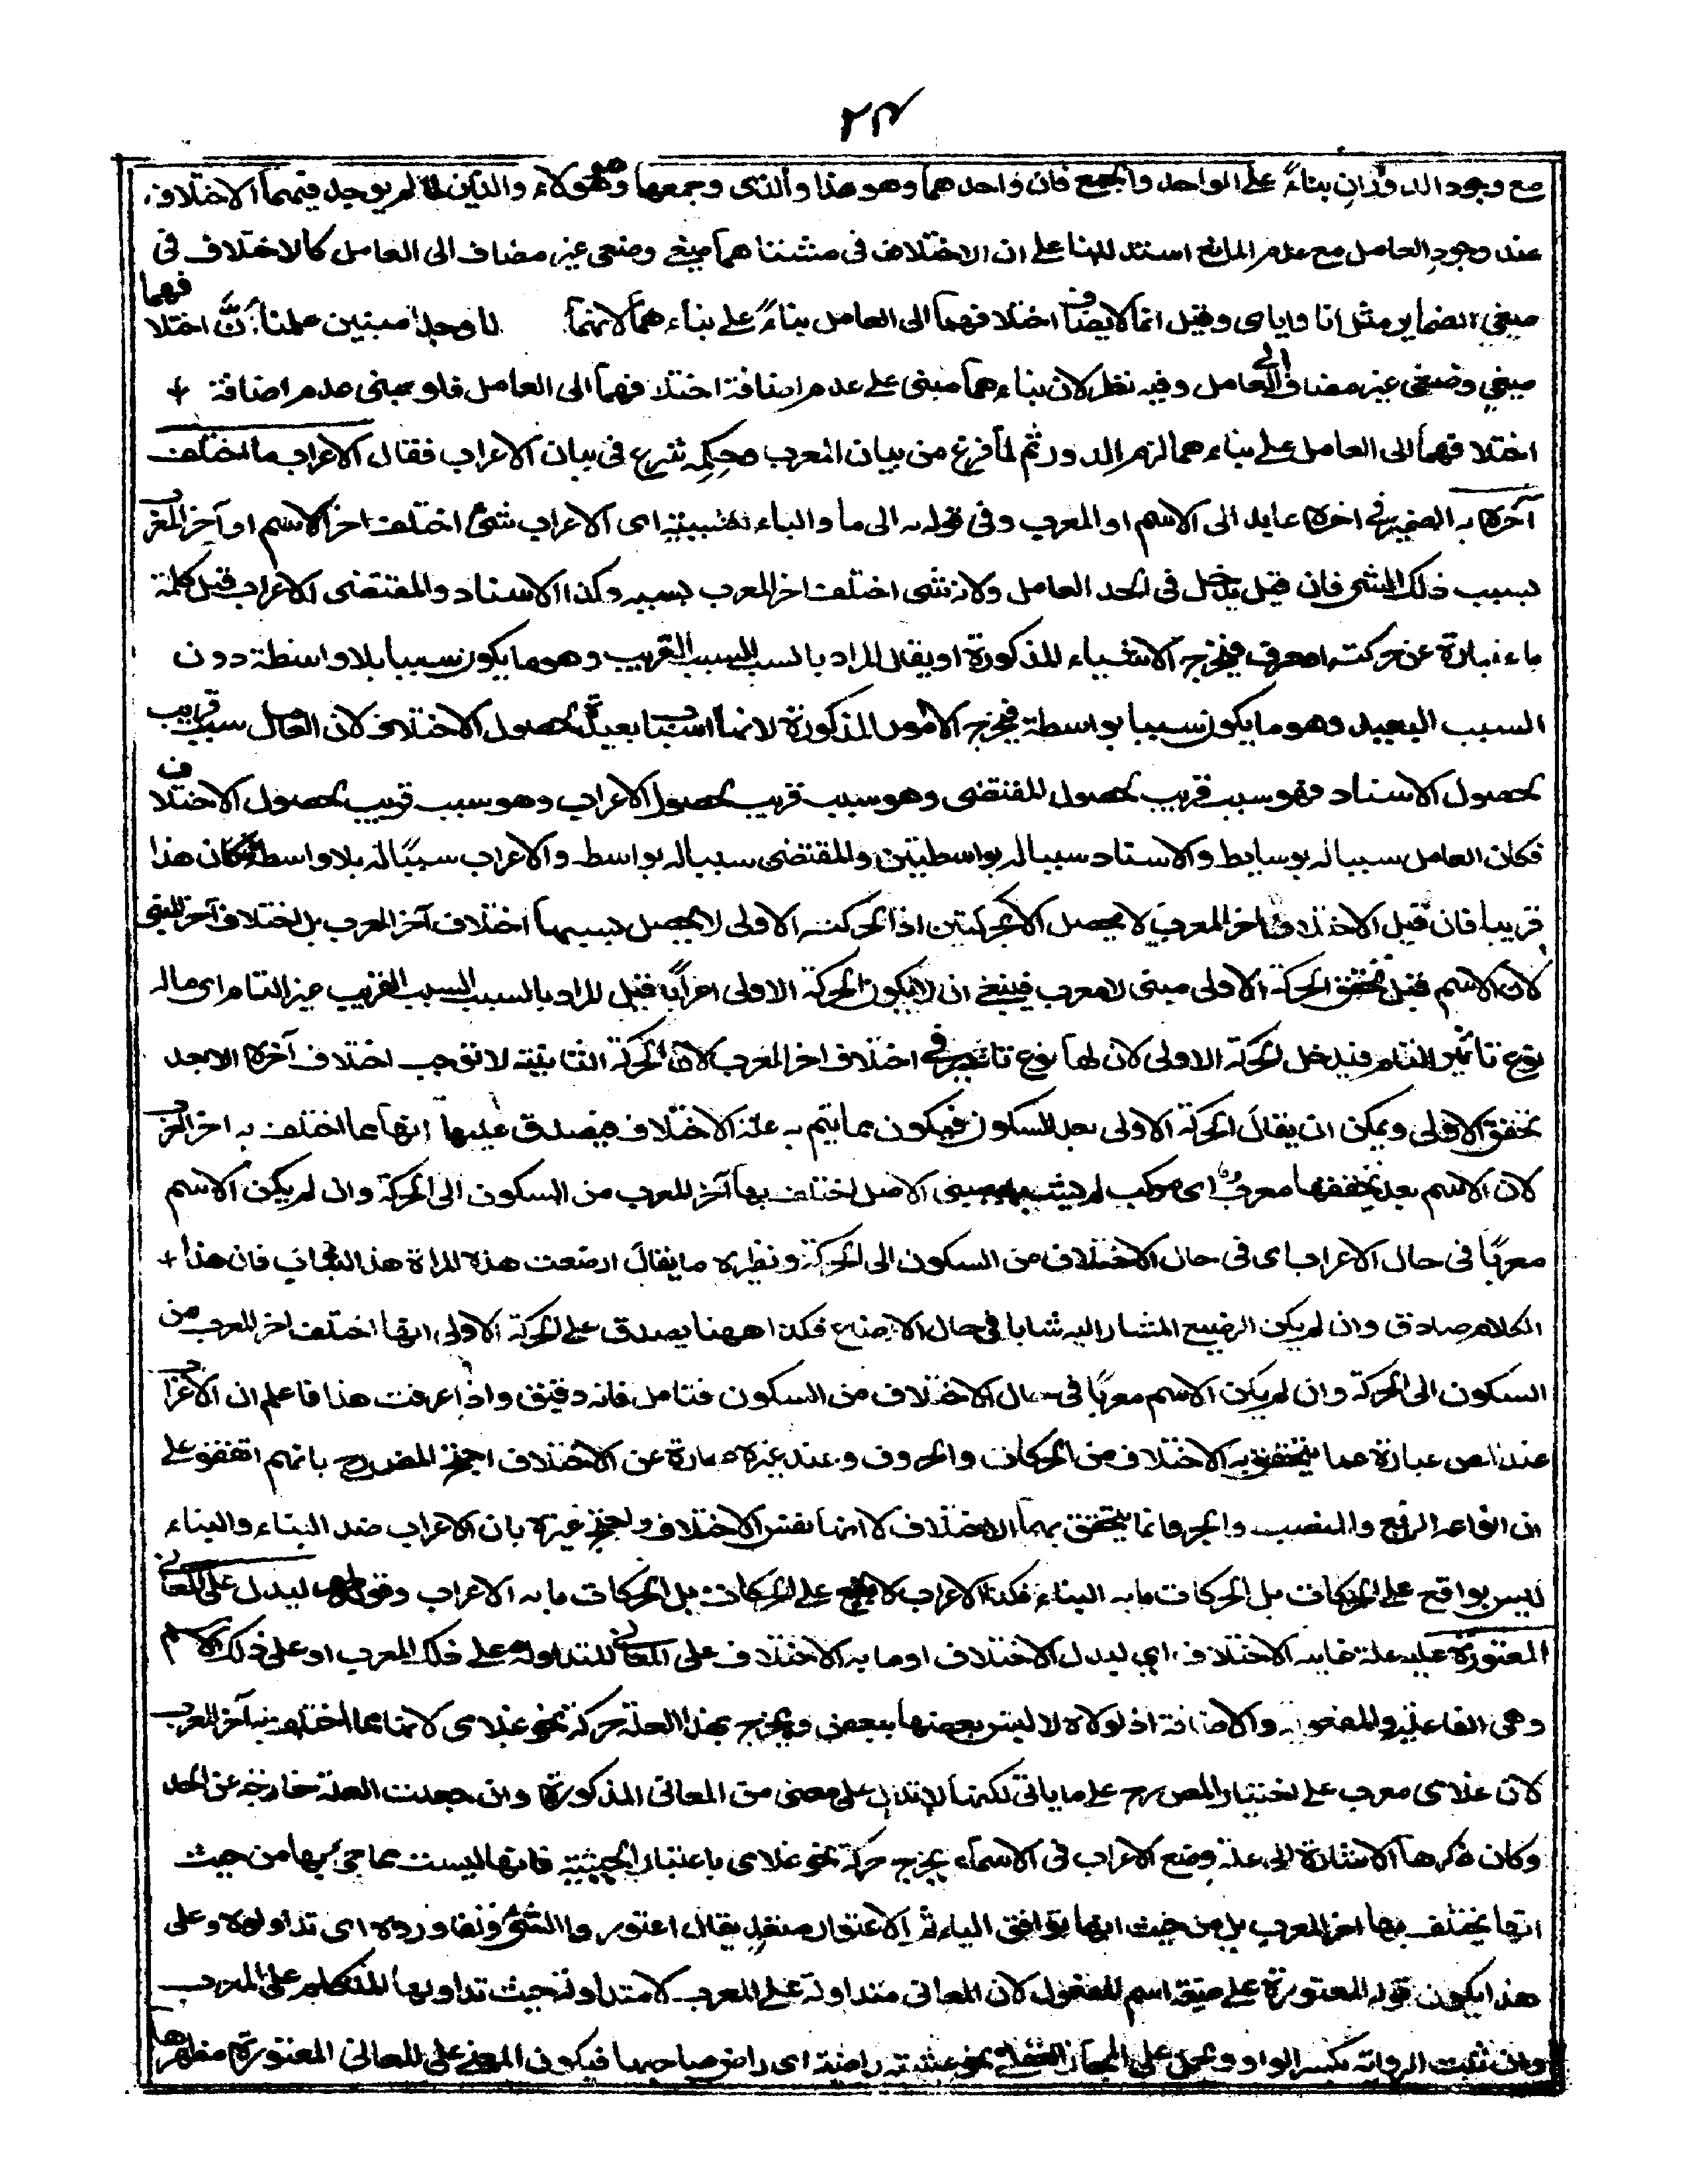 ٢٣
مع وجود الدوران بناءً على الواحد والجمع فان واحدهما وهو هذا والذى وجمعها وهو هولاء والذين لما لم يوجد فيهما الاختلاف
عند وجود العامل مع عدم المانع استدللنا على ان الاختلاف فى مثناهما صيغى وضعى غير مضاف الى العامل كالاختلاف فى
صيغ الضماير مثل انا واياى وقيل انما لا يضاف اختلافهما الى العامل بناءً على بناءهما لانهما لما وجدا مبنيين علمنا أنّ اختلافهما
صيغى وضعى غير مضاف الى العامل وفيه نظر لان بناءهما مبنى على عدم اضافة اختلافهما الى العامل فلو بنى عدم اضافة
اختلافهما الى العامل على بناءهما لزم الدور ثم لما فرغ من بيان المعرب وحكمه شرع فى بيان الاعراب فقال الاعراب ما اختلف
آخره به الضمير فى اخره عايد الى الاسم او المعرب وفى قوله به الى ما والباء للسببية اى الاعراب شئ اختلف اخر الاسم او آخر المعرب
بسبب ذلك الشئ فان قيل يدخل فى الحد العامل ولانه شئ اختلف اخر المعرب بسببه وكذا الاسناد والمقتضى الاعراب قيل كلمة
ما عبارة عن حركت او حرف فيخرج الاشياء المذكورة او يقال المراد بالسبب السبب القريب وهو ما يكون سببا بلا واسطة دون
السبب البعيد وهو ما يكون سببا بواسطة فيخرج الامور المذكورة لانها اسبابا بعيدة لحصول الاختلاف لان العامل سبب قريب
لحصول الاسناد وهو سبب قريب لحصول المقتضى وهو سبب قريب لحصول الاعراب وهو سبب قريب لحصول الاختلاف
فكان العامل سببا له بوسايط والاسناد سببا له بواسطتين والمقتضى سببا له بواسطة والاعراب سببًا له بلا واسطة فكان هذا
قريبا فان قيل الاختلاف فى اخر المعرب لا يحصل الا بحركتين اذ الحركت الاولى لا يحصل بسببها اختلاف آخر المعرب بل اختلاف آخر المبنى
لان الاسم قبل تحقق الحركة الاولى مبنى لا معرب فينبغى ان لا يكون الحركة الاولى اعرابًا قيل المراد بالسبب السبب القريب غير التام اى ماله
نوع تاثير التام فيدخل الحركة الاولى لان لها نوع تاثير فى اختلاف اخر المعرب لان الحركة الثانية لا توجب اختلاف آخره الا بعد
تحقق الاولى ويمكن ان يقال الحركة الاولى بعد السكون فيكون مما يتم به علة الاختلاف فيصدق عليها انها مما اختلف به اخر المعرب
لان الاسم بعد تحققها معرب اى مركب لم يشبه مبنى الاصل اختلف بها آخر المعرب من السكون الى الحركة وان لم يكن الاسم
معربًا فى حال الاعراب اى فى حال الاختلاف من السكون الى الحركة ونظيره ما يقال ارضعت هذه المراة هذا الشاب فان هذا
الكلام صادق وان لم يكن الرضيع المشار اليه شابا فى حال الارضاع فكذا ههنا يصدق على الحركة الاولى انها اختلف اخر المعرب من
السكون الى الحركة وان لم يكن الاسم معربًا فى حال الاختلاف من السكون فتامل فانه دقيق واذا عرفت هذا فاعلم ان الاعراب
عند المص عبارة عما يتحقق به الاختلاف من الحركات والحروف وعند غيره عبارة عن الاختلاف احتج المص رح بانهم اتفقوا على
ان انواعه الرفع والنصب والجر وانما يتحقق بهما الاختلاف لا انها نفس الاختلاف واحتج غيره بان الاعراب ضد البناء والبناء
ليس بواقع على الحركات بل الحركات ما به البناء فكذا الاعراب لا يقع على الحركات بل الحركات ما به الاعراب وقوله ليدل على المعانى
المعتورة عليه علة غايية الاختلاف اى ليدل الاختلاف او ما به الاختلاف على المعانى المتداولة على ذلك المعرب او على ذلك الاسم
وهى الفاعلية والمفعولية والاضافة اذ لولاه لالتبس بعضها ببعض ويخرج بهذا الحد حركة نحو غلامى لانها مما اختلف به آخر المعرب
لان غلامى معرب على اختيار المص رح على ما ياتى لكنها لا تدل على معنى من المعانى المذكورة وان جعلت العلة خارجة عن الحد
وكان ذكرها الاشارة الى علة وضع الاعراب فى الاسماء يخرج حركة نحو غلامى باعتبار الحيثية فانها ليست مما جئ بها من حيث
انها يختلف بها اخر المعرب بل من حيث انها يوافق الياء ثم الاعتوار متعد يقال اعتوروا الشئ وتعاوروه اى تداولوه وعلى
هذا يكون قوله المعتورة على صيغة اسم المفعول لان المعانى متداولة على المعرب لا متداولة حيث تداولها المتكلم على المعرب
وان ثبت الرواية بكسر الواو ويحمل على المجاز العقلى نحو عيشة راضية اى راض صاحبها فيكون المعنى على المعانى المعتورة مظهرها